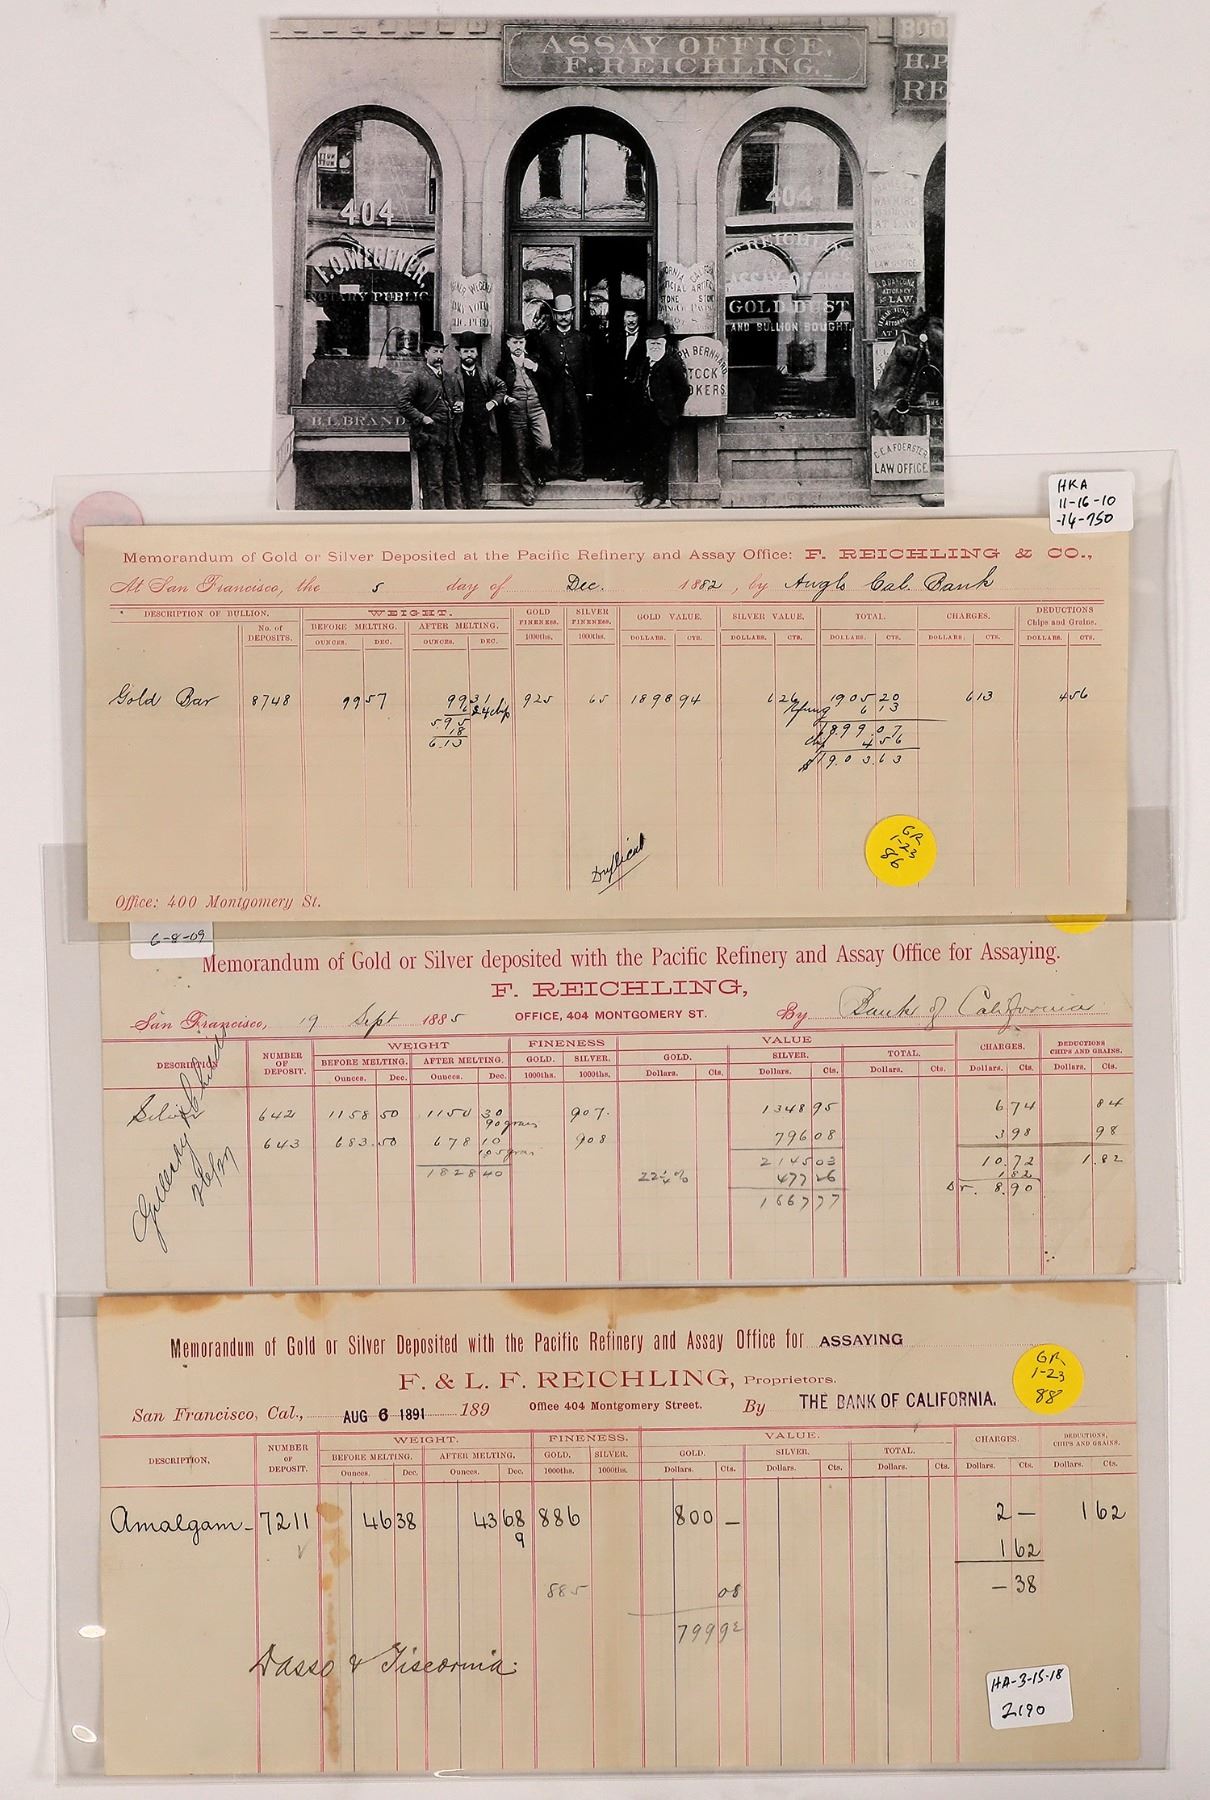 ASSAY OFFICE,
F. REICHLING.
BOO
H.P
RE
404
F.O.WEGENER,
NOTARY PUBLIC
B.L.BRAND
404
F REICHLING
ASSAY OFFICE
GOLD DUST
AND BULLION BOUGHT.
PH BERNHARD
STOCK
OKERS
AT LAW
LAW OFFICE
ATTORNEY
LAW.
C.E.A FOERSTER
LAW OFFICE
HKA
11-16-10
-14-750
Memorandum of Gold or Silver Deposited at the Pacific Refinery and Assay Office: F. REICHLING & CO.,
At San Francisco, the 5 day of Dec. 1882, by Anglo Cal. Bank
DESCRIPTION OF BULLION. WEIGHT. GOLD FINENESS. SILVER FINENESS. GOLD VALUE. SILVER VALUE. TOTAL. CHARGES. DEDUCTIONS Chips and Grains.
No. of DEPOSITS. BEFORE MELTING. AFTER MELTING. 1000ths. 1000ths. DOLLARS. CTS. DOLLARS. CTS. DOLLARS. CTS. DOLLARS. CTS. DOLLARS. CTS.
OUNCES. DEC. OUNCES. DEC.
Gold Bar 8748 99 57 99 31 925 65 1898 94 6 26 1905 20 6 13 4 56
24 chip 6 13
595 1899.07
18 chip 4 56
6.13 $1903.63
Duplicate
GR
1-23
86
Office: 400 Montgomery St.
6-8-09
Memorandum of Gold or Silver deposited with the Pacific Refinery and Assay Office for Assaying.
F. REICHLING,
San Francisco, 19 Sept 1885 OFFICE, 404 MONTGOMERY ST. By Bank of California
DESCRIPTION NUMBER OF DEPOSIT. WEIGHT FINENESS VALUE CHARGES. DEDUCTIONS CHIPS AND GRAINS.
BEFORE MELTING. AFTER MELTING. GOLD. SILVER. GOLD. SILVER. TOTAL.
Ounces. Dec. Ounces. Dec. 1000ths. 1000ths. Dollars. Cts. Dollars. Cts. Dollars. Cts. Dollars. Cts. Dollars. Cts.
Silver 642 1158 50 1150 30 907. 1348 95 6.74 84
90 grains
643 683.50 678 10 908 796 08 3 98 98
105 grains
1828 40 2145 03 10.72 1.82
22 1/4 % 477 26 1 82
1667 77 Dr. 8.90
Memorandum of Gold or Silver Deposited with the Pacific Refinery and Assay Office for ASSAYING
F. & L. F. REICHLING, Proprietors.
San Francisco, Cal., AUG 6 1891 189 Office 404 Montgomery Street. By THE BANK OF CALIFORNIA.
GR
1-23
88
DESCRIPTION, NUMBER OF DEPOSIT. WEIGHT. FINENESS. VALUE. CHARGES. DEDUCTIONS, CHIPS AND GRAINS.
BEFORE MELTING. AFTER MELTING. GOLD. SILVER. GOLD. SILVER. TOTAL.
Ounces. Dec. Ounces. Dec. 1000ths. 1000ths. Dollars. Cts. Dollars. Cts. Dollars. Cts. Dollars. Cts. Dollars. Cts.
Amalgam - 7211 46 38 43 68 886 800 - 2 - 1 62
9 1 62
885 08 - 38
799 92
Dasso & Tiscornia.
HA-3-15-18
2190